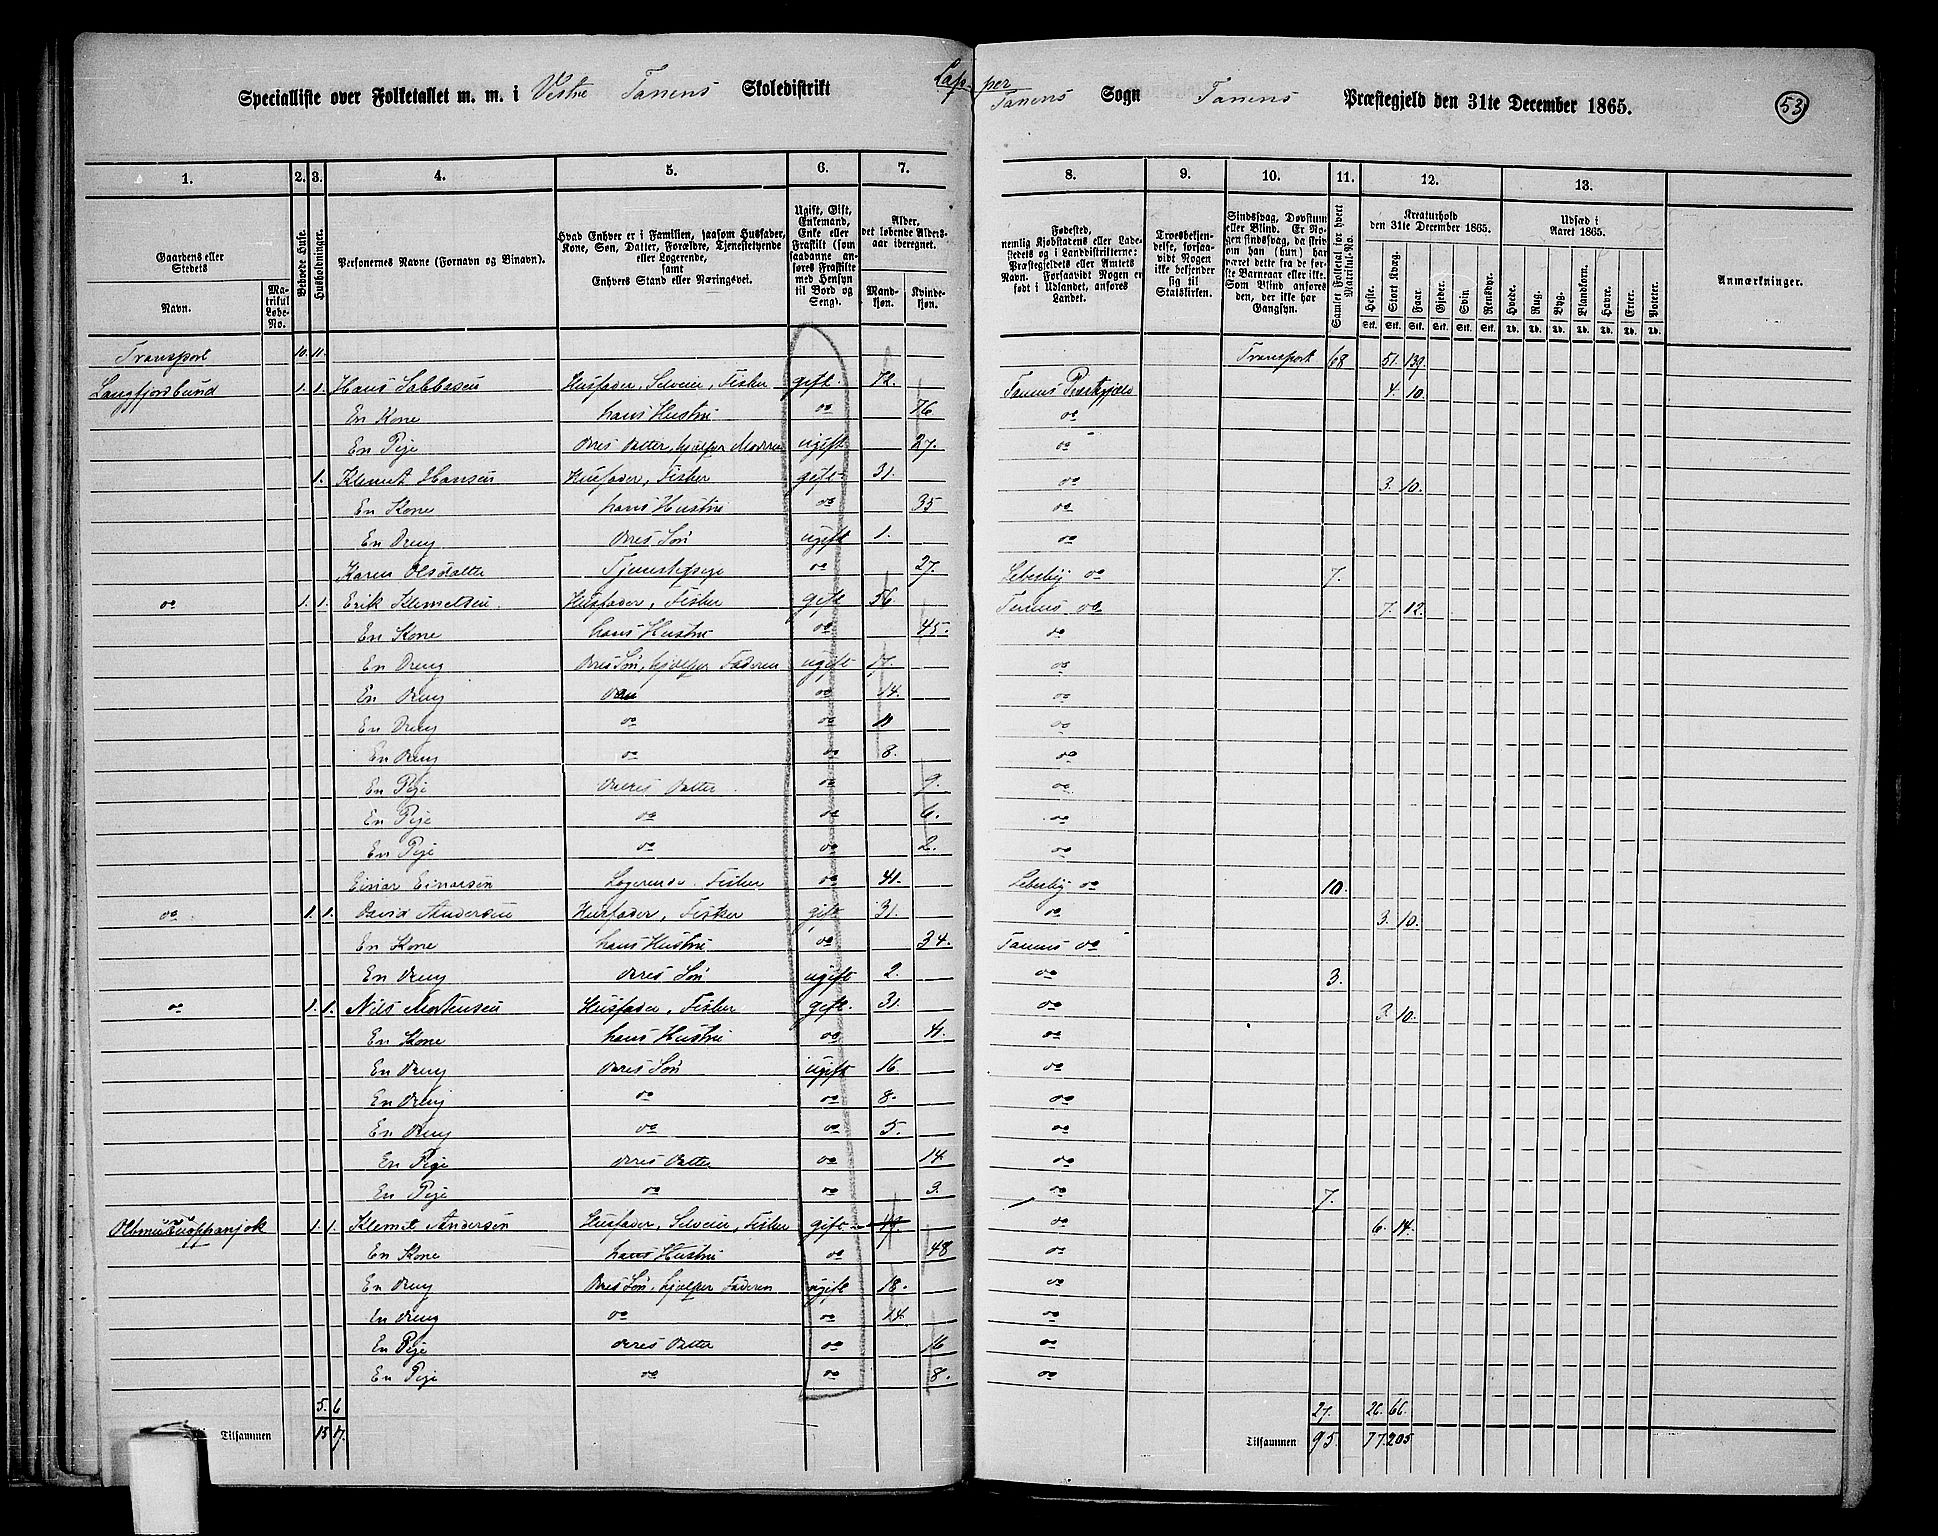 Lap-per
Specialliste over Folketallet m. m. i Vestre Tanens Skoledistrikt Tanens Sogn Tanens Præstegjeld den 31te December 1865. 53
1. 2. 3. 4. 5. 6. 7. 8. 9. 10. 11. 12. 13.
Gaardens eller Stedets
Navn. Matrikul Løbe-No.
Beboede Huse.
Husholdninger.
Personernes Navne (Fornavn og Binavn).
Hvad Enhver er i Familien, saasom Husfader, Kone, Søn, Datter, Forældre, Tjenestetyende eller Logerende, samt Enhvers Stand eller Næringsvei.
Ugift, Gift, Enkemand, Enke eller Fraskilt (som saadanne anføres Fraskilte med Hensyn til Bord og Seng).
Alder, det løbende Aldersaar iberegnet.
Mandkjøn. Kvindekjøn.
Fødested, nemlig Kjøbstadens eller Ladestedets og i Landdistrikterne: Præstegjeldets eller Amtets Navn. Forsaavidt Nogen er født i Udlandet, anføres Landet.
Troesbekjendelse, forsaavidt Nogen ikke bekjender sig til Statskirken.
Sindssvag, Døvstum eller Blind. Er Nogen sindssvag, da skrives om han (hun) har været dette fra de første Barneaar eller ikke. Som Blind anføres den, der ikke har Gangsyn.
Samlet Folketal for hvert Matrikul-No.
Kreaturhold den 31te December 1865.
Heste. Stort Kvæg. Faar. Gjeder. Svin. Rensdyr.
Udsæd i Aaret 1865.
Hvede. Rug. Byg. Blandkorn. Havre. Erter. Poteter.
Anmærkninger.
Transport 10. 11. Transport 68 51. 139.
Langfjordbund 1. 1. Hans Sabbasen Husfader, Selveier, Fisker gift. 72. Tanens Præstegjeld 4. 10.
En Kone hans Hustru do 76 do
En Pige deres Datter, hjælper Moderen ugift 27. do
1. Klemet Hansen Husfader, Fisker gift 31. do 3. 10.
En Kone hans Hustru do 35 do
En Dreng deres Søn ugift 1. do
Karen Olsdatter Tjenestepige do 27. Lebesby do 7.
do 1. 1. Erik Klemetsen. Husfader, Fisker gift 56 Tanens do 7. 12.
En Kone hans Hustru do 45. do
En Dreng deres Søn, hjælper Faderen ugift 17. do
En Dreng do 14. do
En Dreng do do 11 do
En Dreng do do 8. do
En Pige deres Datter do 9. do
En Pige do do 6. do
En Pige do do 2. do
Einar Einarsen Logerende. Fisker do 41. Lebesby do 10.
do 1. 1. David Andersen Husfader, Fisker gift 31. do 3. 10.
En Kone hans Hustru do 34. Tanens do
En Dreng deres Søn ugift 2. do 3.
do 1. 1. Nils Mortensen Husfader, Fisker gift. 31. do 3. 10.
En Kone hans Hustru do 41. do
En Dreng deres Søn ugift 16. do
En Dreng do do 8. do
En Dreng do do 5. do
En Pige deres Datter do 14 do
En Pige do do 3. do 7.
1. 1. Klemet Andersen Husfader, Selveier, Fisker gift 49. do 6. 14.
En Kone hans Hustru do 48 do
En Dreng deres Søn, hjælper Faderen ugift 18. do
En Dreng do do 14. do
En Pige deres Datter do 16 do
En Pige do do 8. do
5. 6 27. 26. 66.
Tilsammen 15 17. Tilsammen 95. 77. 205